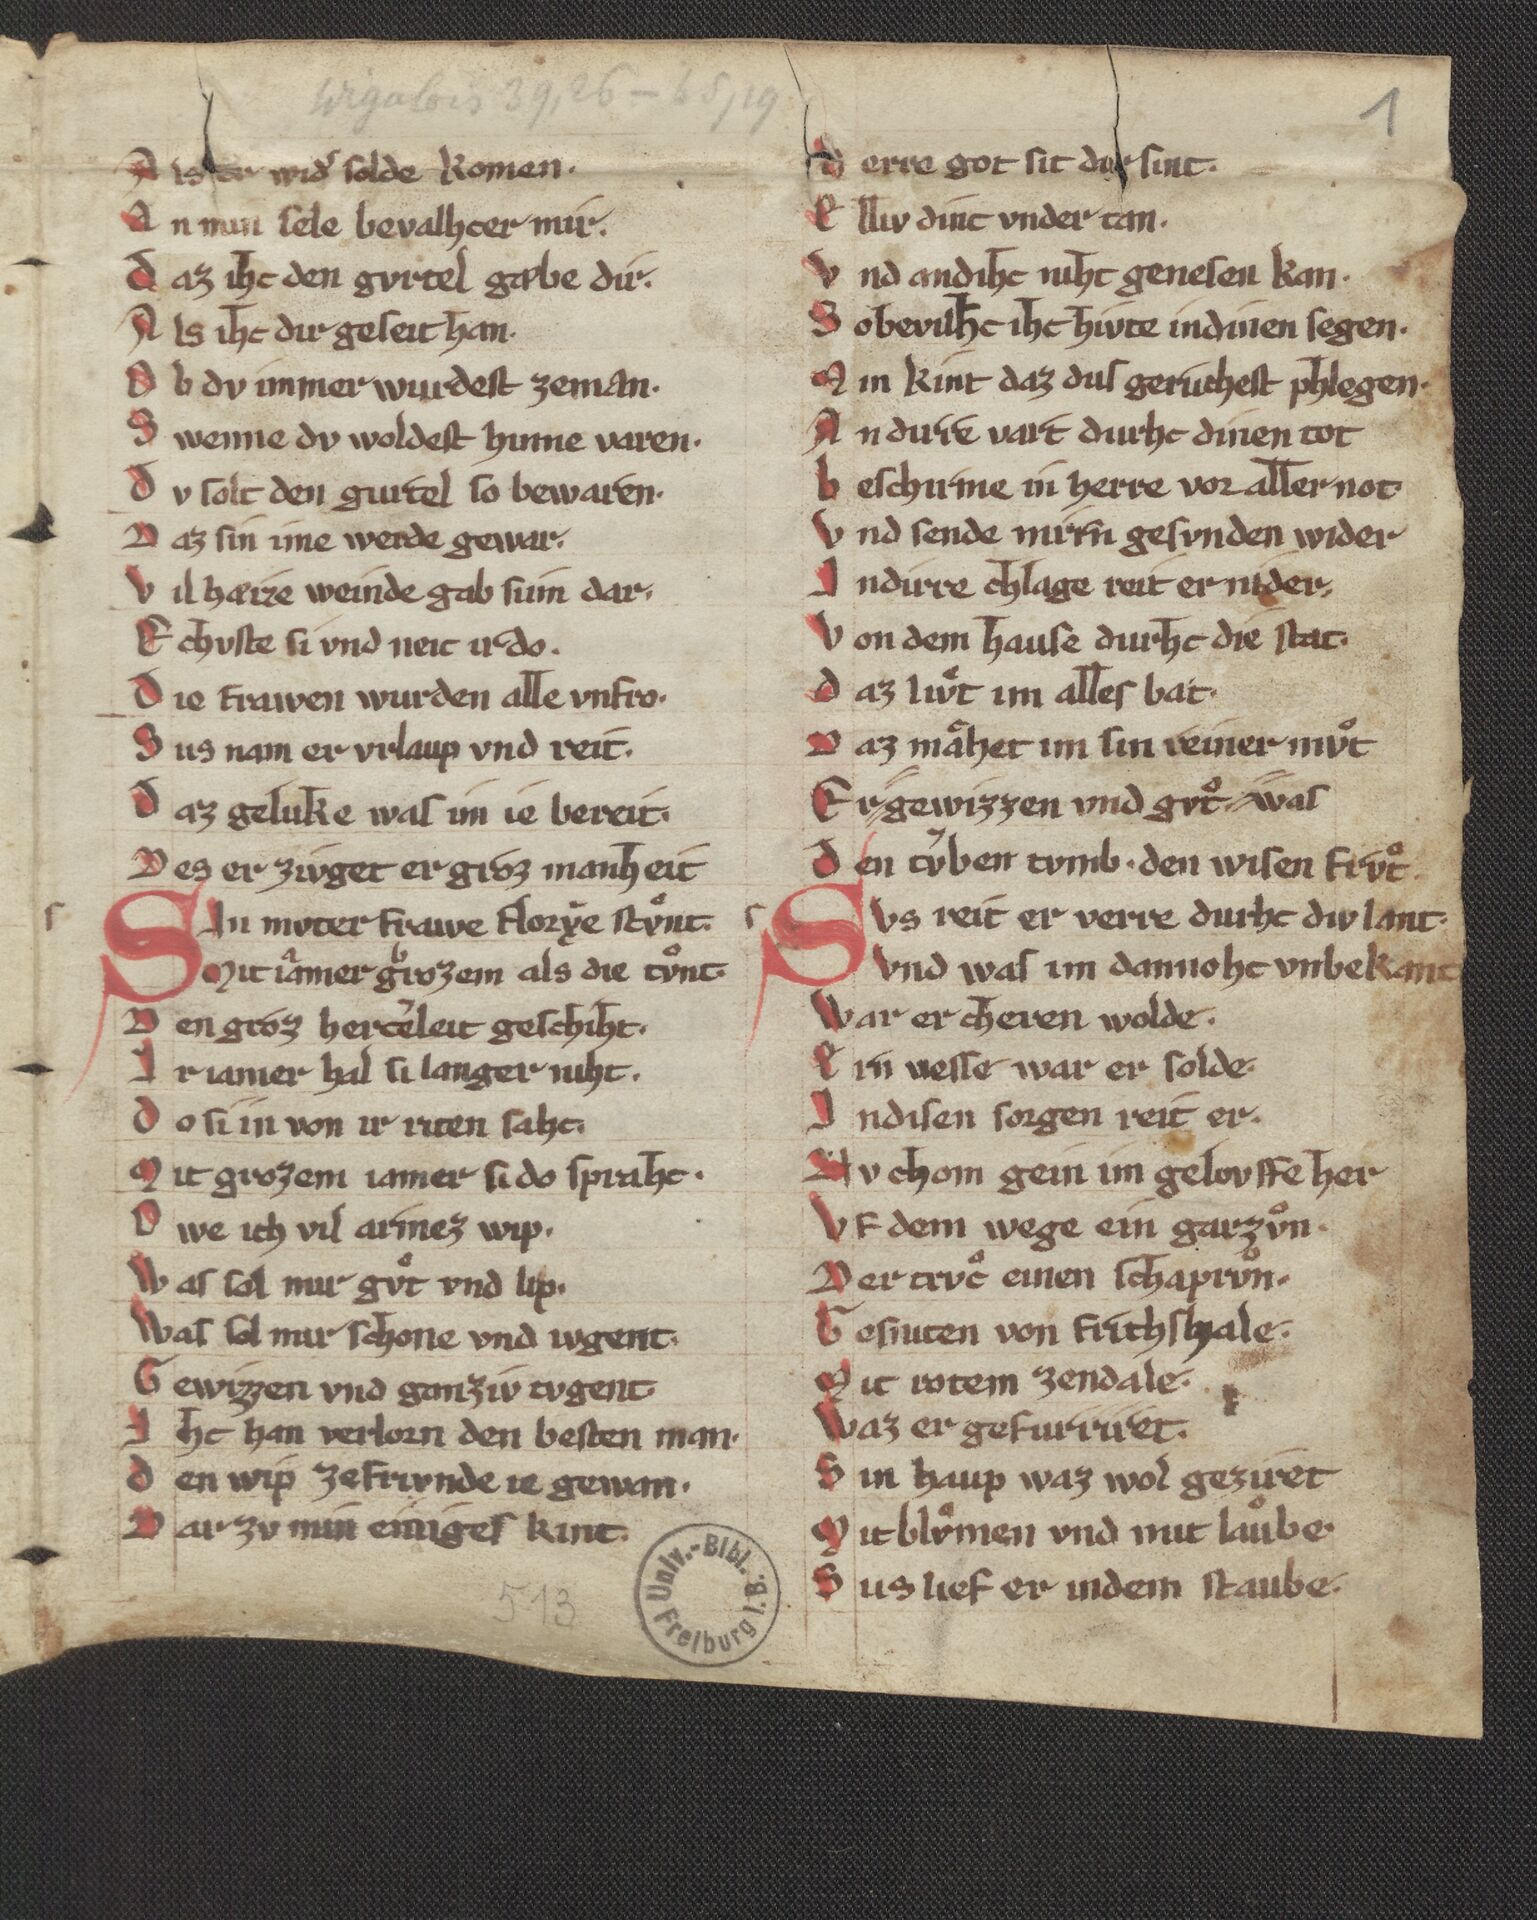 Wigalois 39,26 – 45,19
1
A ls er wid͛ solde komen.
A n min sele bevalhcer mir.
d az ihc den gvrtel gæbe dir.
A ls ihc dir geseit han.
O b dv immer wurdest zeman.
S wenne dv woldest hinne varen.
d v solt den gurtel so bewaren.
D az sin ime werde gewar.
V il harze weinde gab siim dar.
E r chvste si vnd neic ir do.
D ie frawen wurden alle vnfro.
S us nam er vrlaup vnd reit.
d az geluke was im ie bereit.
D es er zivget er groz manheit
s
SIn mvter frawe florye stvͦnt.
Mit iamer grozem als die tvͦnt.
D en groz hertzeleit geschiht.
I r iamer hal si langer niht.
d o si in von ir riten sahc.
M it grozem iamer si do sprahc.
O we ich vil armez wip.
W as sol mir gvͦt vnd lip.
Was sol mir schone vnd ivgent.
G ewizzen vnd ganziv tvgent.
I hc han verlorn den besten man.
d en wip zefrivnde ie gewan.
D ar zv min einiges kint.
H erre got sit dir sint.
E lliv dinc vnder tan.
v nd an dihc niht genesen kan.
S o bevilhc ihc hivte indinen segen.
M in kint daz dus geruchest phlegen.
A n dirre vart durhc dinen tot
b eschirme in herre vor aller not.
v nd sende mirn gesvnden wider
I ndirre chlage reit er nider.
V on dem hause durhc die stat.
d az livͤt im alles bat.
D az maͤhet im sin reiner mvͦt
Er gewizzen vnd gvͦt was
d en tvben tvmb. den wisen frvͦt.
s
SVs reit er verre durhc div lant.
Vnd was im dannohc vnbekant
War er cheren wolde.
E rn wesse war er solde.
I ndisen sorgen reit er.
N v chom gein im gelovffe her
V f dem wege ein garzvͦn.
D er trvͦc einen schaprvͦn.
G esniten von frithshale.
M it rotem zendale.
Waz er gefurriret.
S in haup waz wol geziret
M it blvͦmen vnd mit lauͦbe.
S us lief er indem staube.
513
Univ.-Bibl. Freiburg i. B.